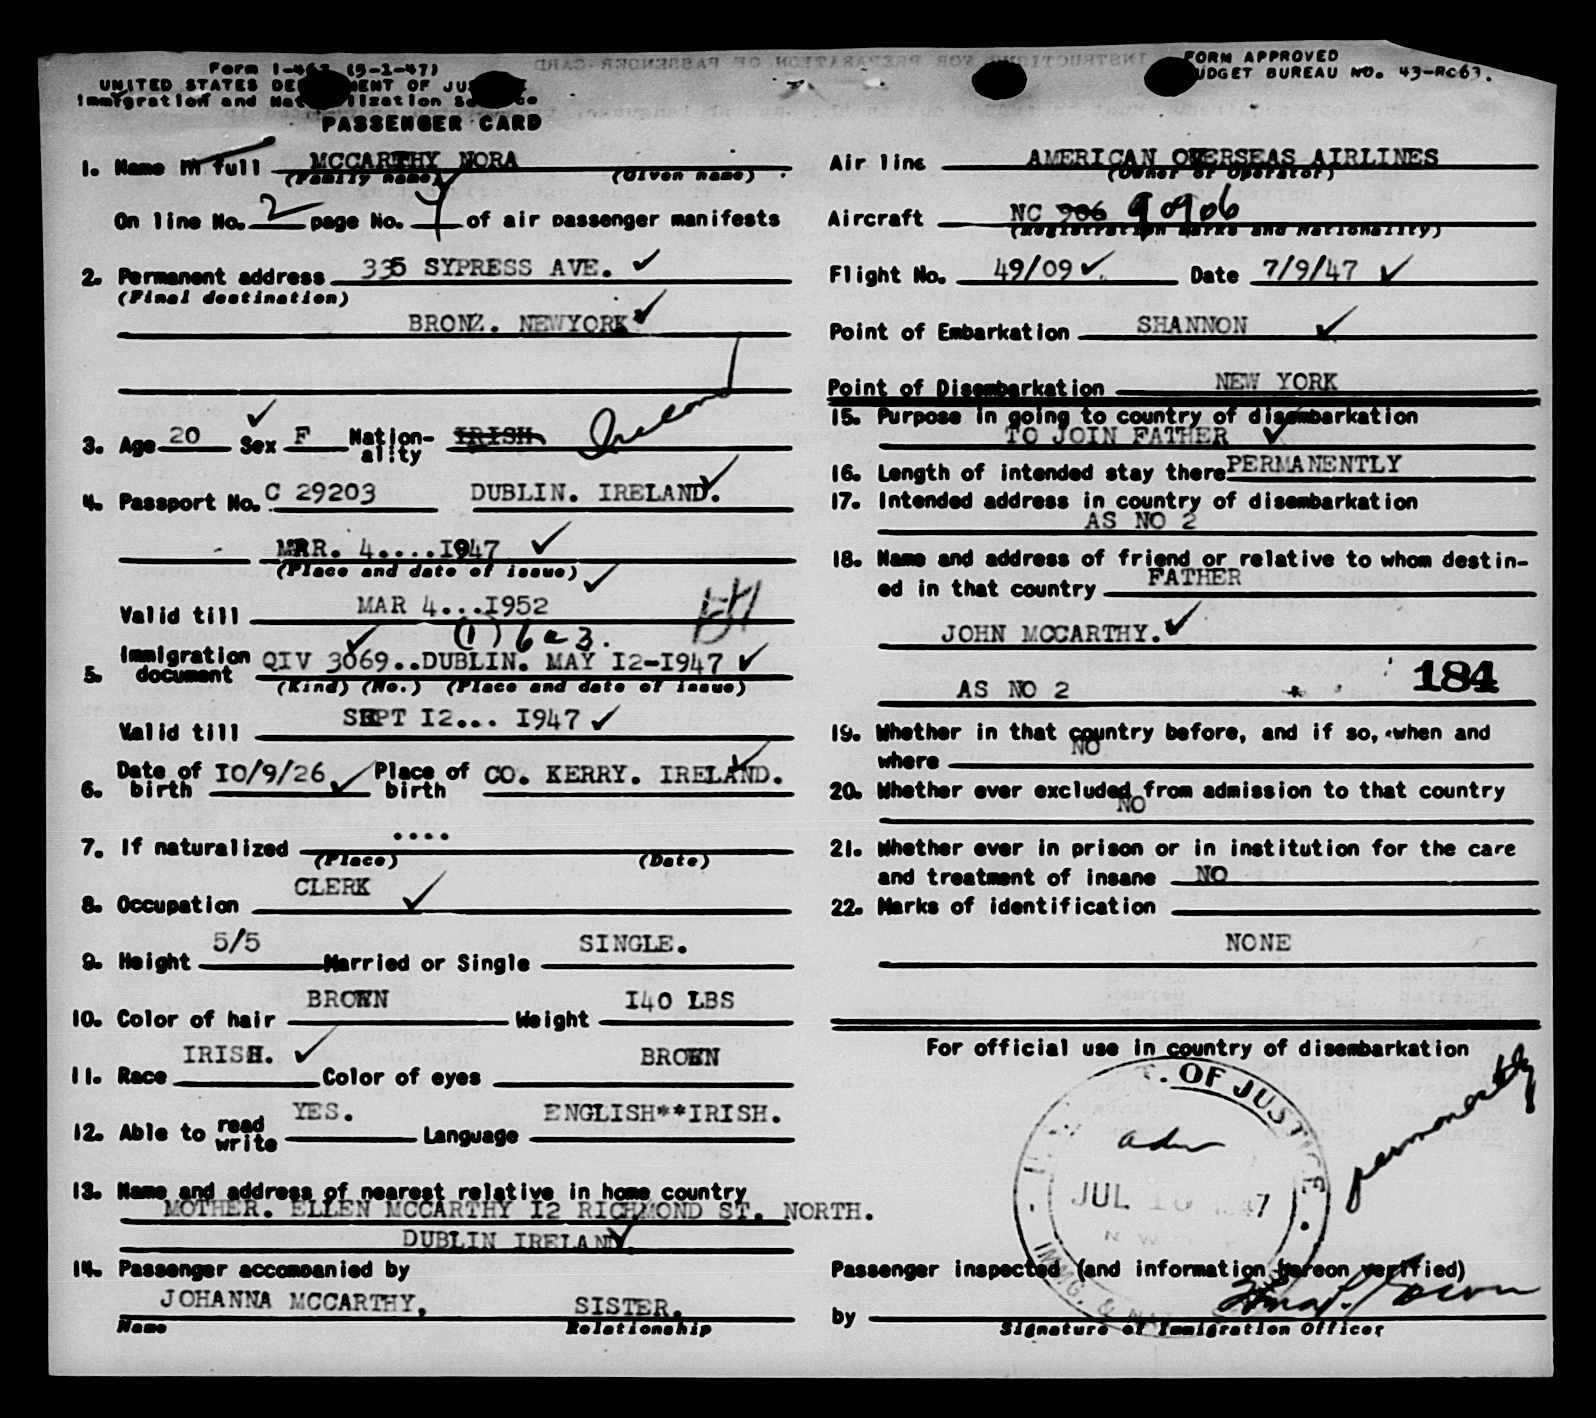 Form I-463 (5-1-47)
UNITED STATES DEPARTMENT OF JUSTICE
Immigration and Naturalization Service
PASSENGER CARD
FORM APPROVED
BUDGET BUREAU NO. 43-RC63.
1. Name in full MCCARTHY NORA
(Family name) (Given name)
On line No. 2 page No. 4 of air passenger manifests
2. Permanent address 335 SYPRESS AVE.
(Final destination)
BRONZ. NEWYORK
3. Age 20 Sex F Nation-ality IRISH Ireland
4. Passport No. C 29203 DUBLIN. IRELAND.
MAR. 4....I947
(Place and date of issue)
Valid till MAR 4...I952
(1) 6 a 3.
5. Immigration document QIV 3069..DUBLIN. MAY I2-I947
(Kind) (No.) (Place and date of issue)
Valid till SEPT I2... I947
6. Date of birth IO/9/26 Place of birth CO. KERRY. IRELAND.
7. If naturalized ....
(Place) (Date)
8. Occupation CLERK
9. Height 5/5 Married or Single SINGLE.
10. Color of hair BROWN Weight I40 LBS
11. Race IRISH. Color of eyes BROWN
12. Able to read write YES. Language ENGLISH**IRISH.
13. Name and address of nearest relative in home country
MOTHER. ELLEN MCCARTHY I2 RICHMOND ST. NORTH.
DUBLIN IRELAND.
14. Passenger accompanied by
JOHANNA MCCARTHY, SISTER.
Name Relationship
Air line AMERICAN OVERSEAS AIRLINES
(Owner or Operator)
Aircraft NC 906 90906
(Registration marks and Nationality)
Flight No. 49/09 Date 7/9/47
Point of Embarkation SHANNON
Point of Disembarkation NEW YORK
15. Purpose in going to country of disembarkation
TO JOIN FATHER
16. Length of intended stay there PERMANENTLY
17. Intended address in country of disembarkation
AS NO 2
18. Name and address of friend or relative to whom destin-
ed in that country FATHER
JOHN MCCARTHY.
AS NO 2 184
19. Whether in that country before, and if so, when and
where NO
20. Whether ever excluded from admission to that country
NO
21. Whether ever in prison or in institution for the care
and treatment of insane NO
22. Marks of identification
NONE
For official use in country of disembarkation
OF JUSTICE
adm permanently
JUL 10 47
IMMIG. & NAT.
Passenger inspected (and information hereon verified)
by
Signature of Immigration Officer